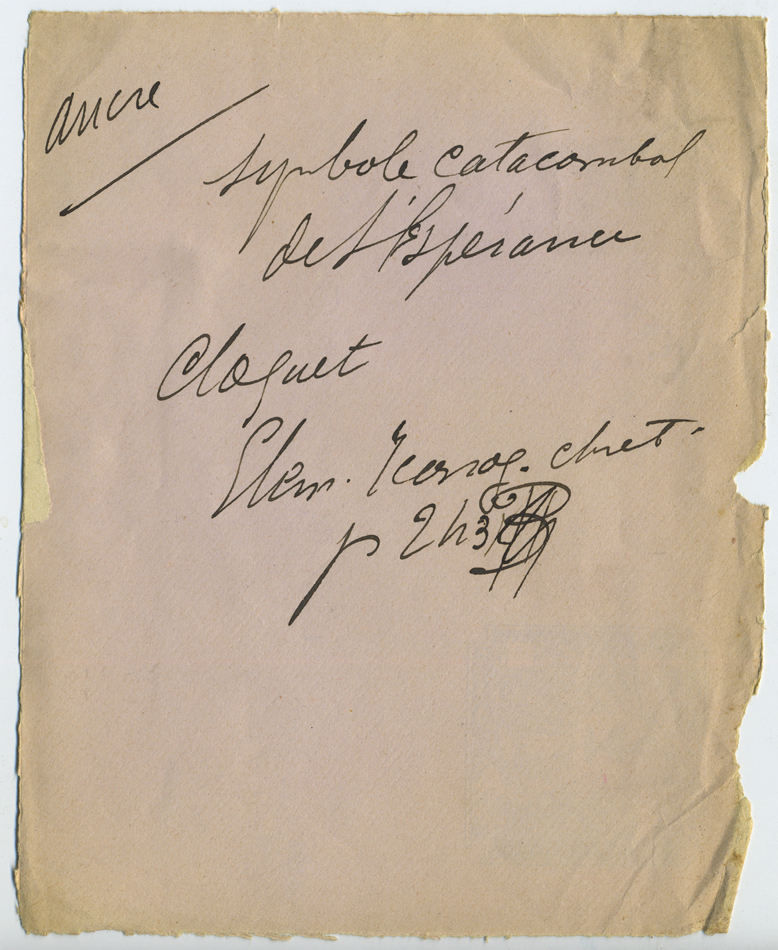 ancre
symbole catacombal
de l'Espérance
Cloquet
Elem. Iconog. chret.
p 243